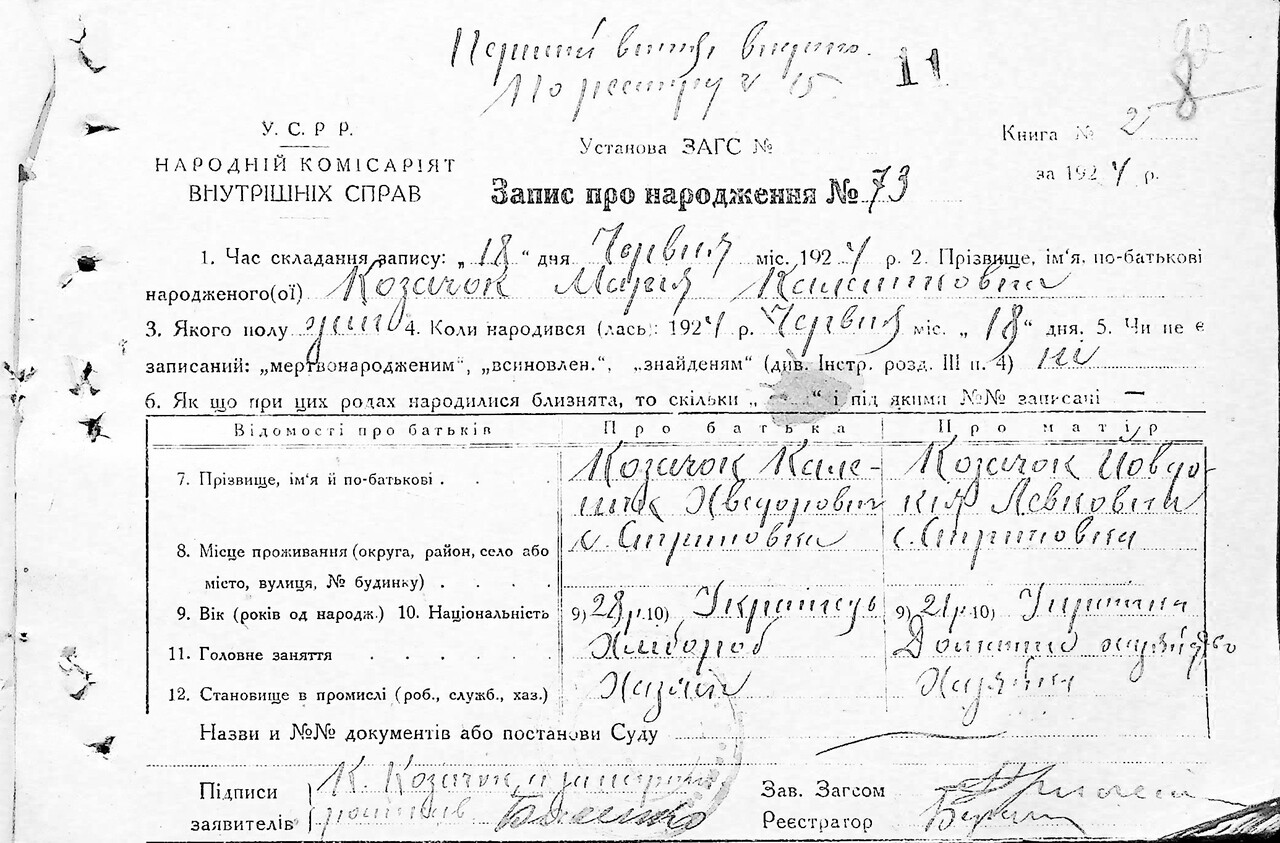 Перший витяг видано.
По реєстру № 15
11
У. С. Р. Р.
НАРОДНІЙ КОМІСАРІЯТ
ВНУТРІШНІХ СПРАВ
Установа ЗАГС №
Книга № 2
за 1924 р.
Запис про народження № 73
1. Час складання запису: „18“ дня Червня міс. 1924 р. 2. Прізвище, ім'я, по-батькові
народженого(ої) Козачок Марія Калениковна
3. Якого полу жін 4. Коли народився (лась): 1924 р. Червня міс. „18“ дня. 5. Чи не є
записаний: „мертвонародженим“, „всиновлен.“, „знайденям“ (див. Інстр. розд. III п. 4) ні
6. Як що при цих родах народилися близнята, то скільки „ “ і під якими №№ записані —
Відомості про батьків Про батька Про матір
7. Прізвище, ім'я й по-батькові . . . . Козачок Кале- Козачок Йовдо-
ник Хведорович кія Левковна
8. Місце проживання (округа, район, село або с. Стритовка с. Стритовка
місто, вулиця, № будинку) . . . .
9. Вік (років од народж.) 10. Національність 9) 28 р. 10) Українець 9) 21 р. 10) Українка
11. Головне заняття . . . . . Хлібороб Домашнє хазяйство
12. Становище в промислі (роб., служб., хаз.) Хазяїн Хазяйка
Назви и №№ документів або постанови Суду
Підписи К. Козачок, а
заявителів
Зав. Загсом
Реєстратор